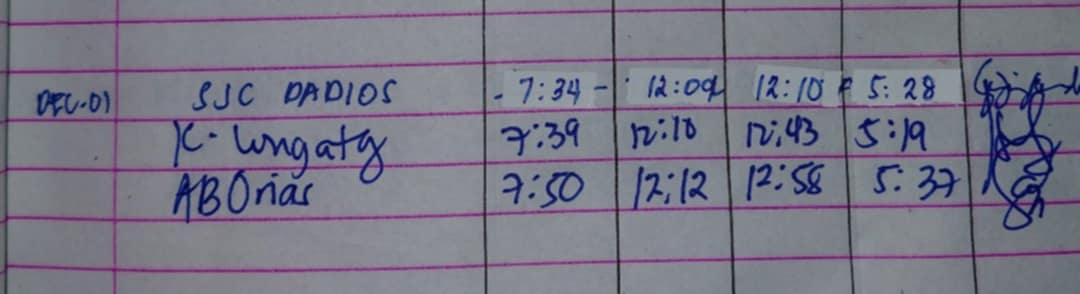 DEC-01 SJC DADIOS - 7:34 - 12:09 12:10 5:28
K. Lungatg 7:39 12:18 12:43 5:19
ABOrias 7:50 12:12 12:58 5:37